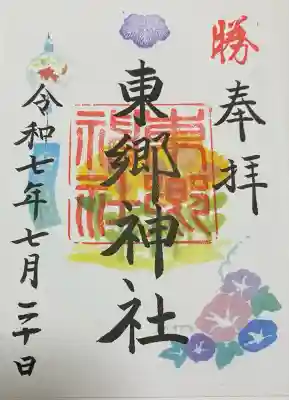 勝
奉拝
東郷神社
東郷神社
令和七年七月二十日